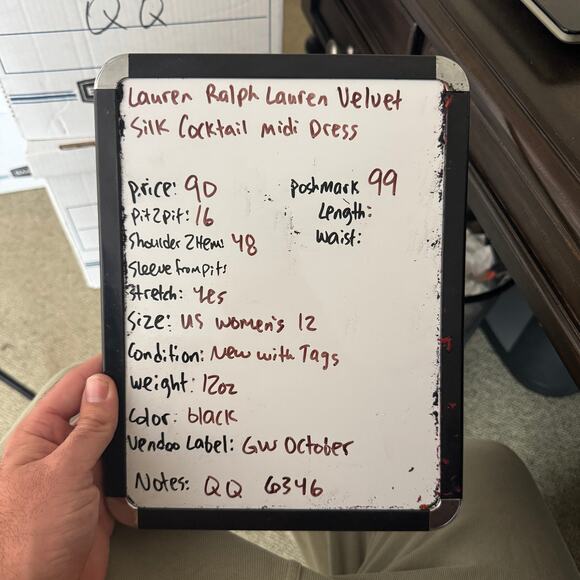 QQ
Lauren Ralph Lauren Velvet
Silk Cocktail Midi Dress
price: 90
poshmark 99
Pit2pit: 16
Length:
Shoulder 2 Hem: 48
Waist:
Sleeve from pits
Stretch: yes
Size: US women's 12
Condition: New with Tags
Weight: 12oz
Color: black
Vendoo Label: GW October
Notes: QQ 6346